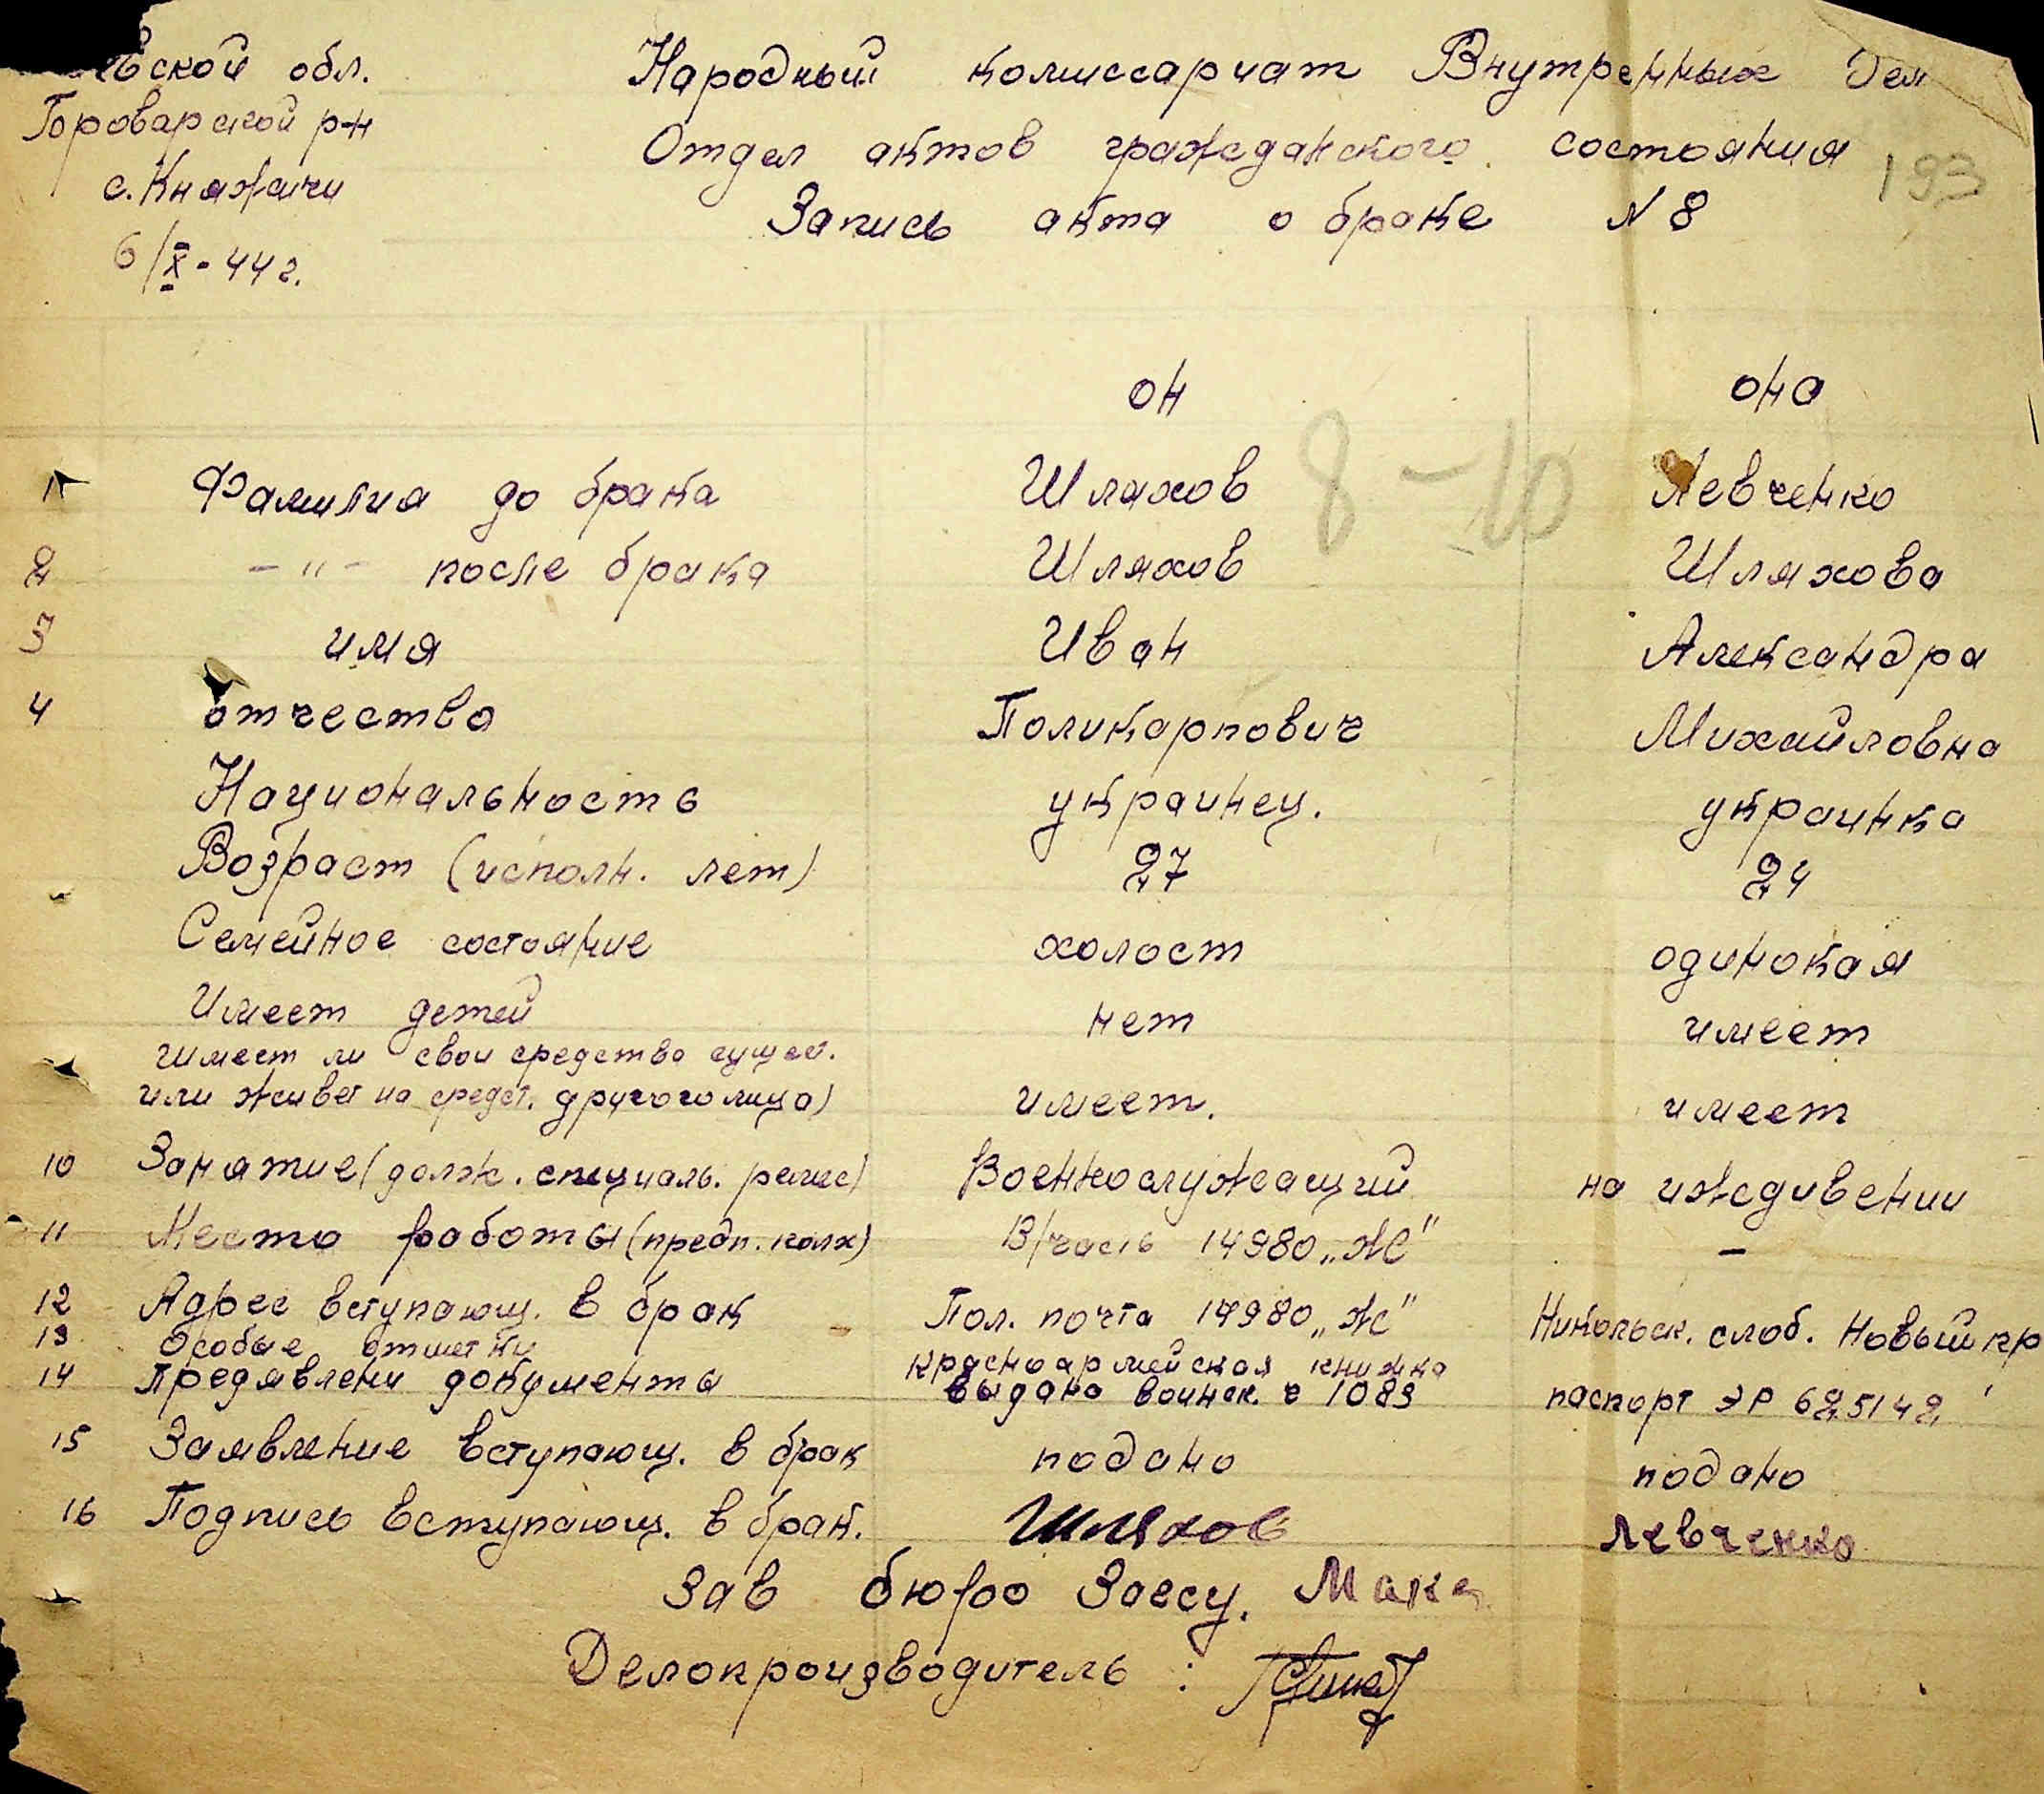 евской обл.
Народный комиссариат Внутренных Дел
Гороварской р-н
Отдел актов гражданского состояния
193
с. Княжичи
Запись акта о браке N 8
6/X-44 г.
он она
8-10
1 Фамилия до брака Шляхов Левченко
2 -"- после брака Шляхов Шляхова
3 имя Иван Александра
4 отчество Поликарпович Михайловна
Национальность украинец. украинка
Возраст (исполн. лет) 27 24
Семейное состояние холост одинокая
Имеет детей нет имеет
имеет ли свои средства сущест.
или живет на средст. другого лица) имеет. имеет
10 Занятие (долж. специаль. ремес) Военнослужащий на иждивении
11 Место работы (предп. колх) В/часть 14980 „Ж" –
12 Адрес вступающ. в брак Пол. почта 14980 „Ж" Никольск. слоб. Новый пр
13 Особые отметки
14 предявлени документы красноармейская книжка
выдана воинск. ч 1083 паспорт ЭР 625142
15 Заявление вступающ. в брак подано подано
16 Подпись вступающ. в брак. Шляхов Левченко
Зав бюро Загсу.
Делопроизводитель :